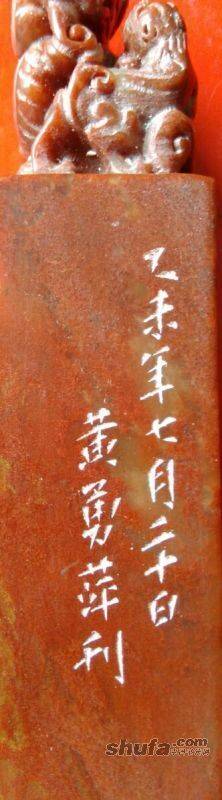 乙未年七月二十日
黄勇萍利
shufa.com